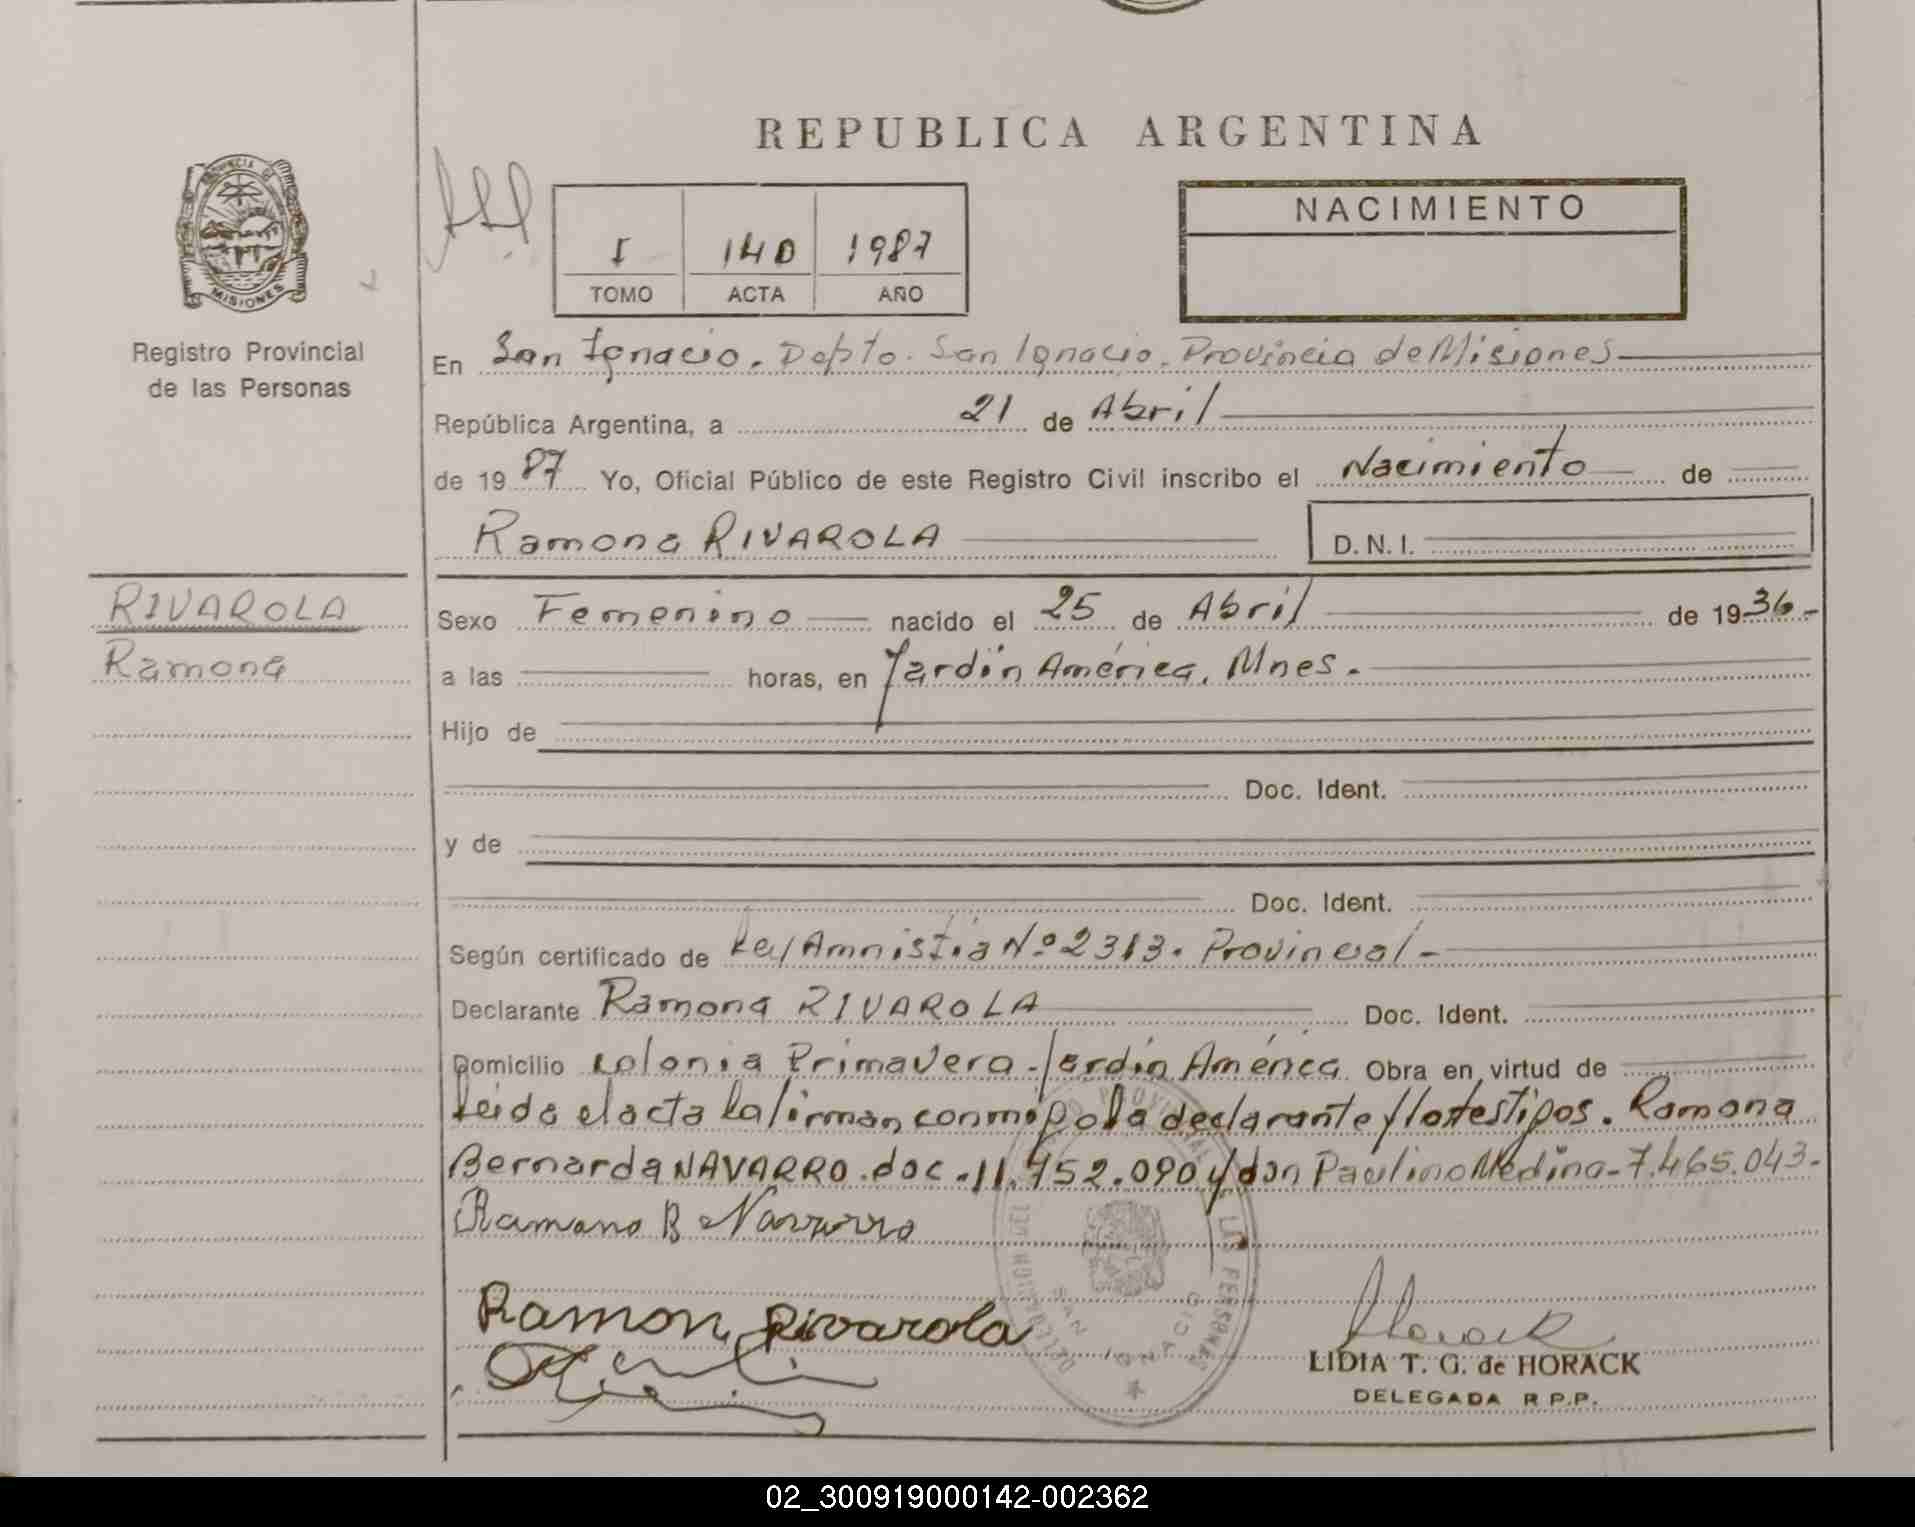 REPUBLICA ARGENTINA
PROVINCIA DE
MISIONES
Registro Provincial
de las Personas
I 140 1987
TOMO ACTA AÑO
NACIMIENTO
En San Ignacio. Depto. San Ignacio. Provincia de Misiones
República Argentina, a 21 de Abril
de 1987 Yo, Oficial Público de este Registro Civil inscribo el Nacimiento de
Ramona RIVAROLA D.N.I.
RIVAROLA
Ramona
Sexo Femenino nacido el 25 de Abril de 1936-
a las horas, en Jardín América, Mnes.
Hijo de
Doc. Ident.
y de
Doc. Ident.
Según certificado de Ley Amnistia Nº 2313. Provincial-
Declarante Ramona RIVAROLA Doc. Ident.
Domicilio colonia Primavera-Jardín América Obra en virtud de
Leida el acta la firman conmigo la declarante y los testigos. Ramona
Bernarda NAVARRO. doc. 11.752.090 y don Paulino Medina-7.465.043-
Ramona B Navarro
Ramona Rivarola
Horack
LIDIA T. G. de HORACK
DELEGADA R.P.P.
PROVINCIAL LAS PERSONAS
SAN IGNACIO
02_300919000142-002362